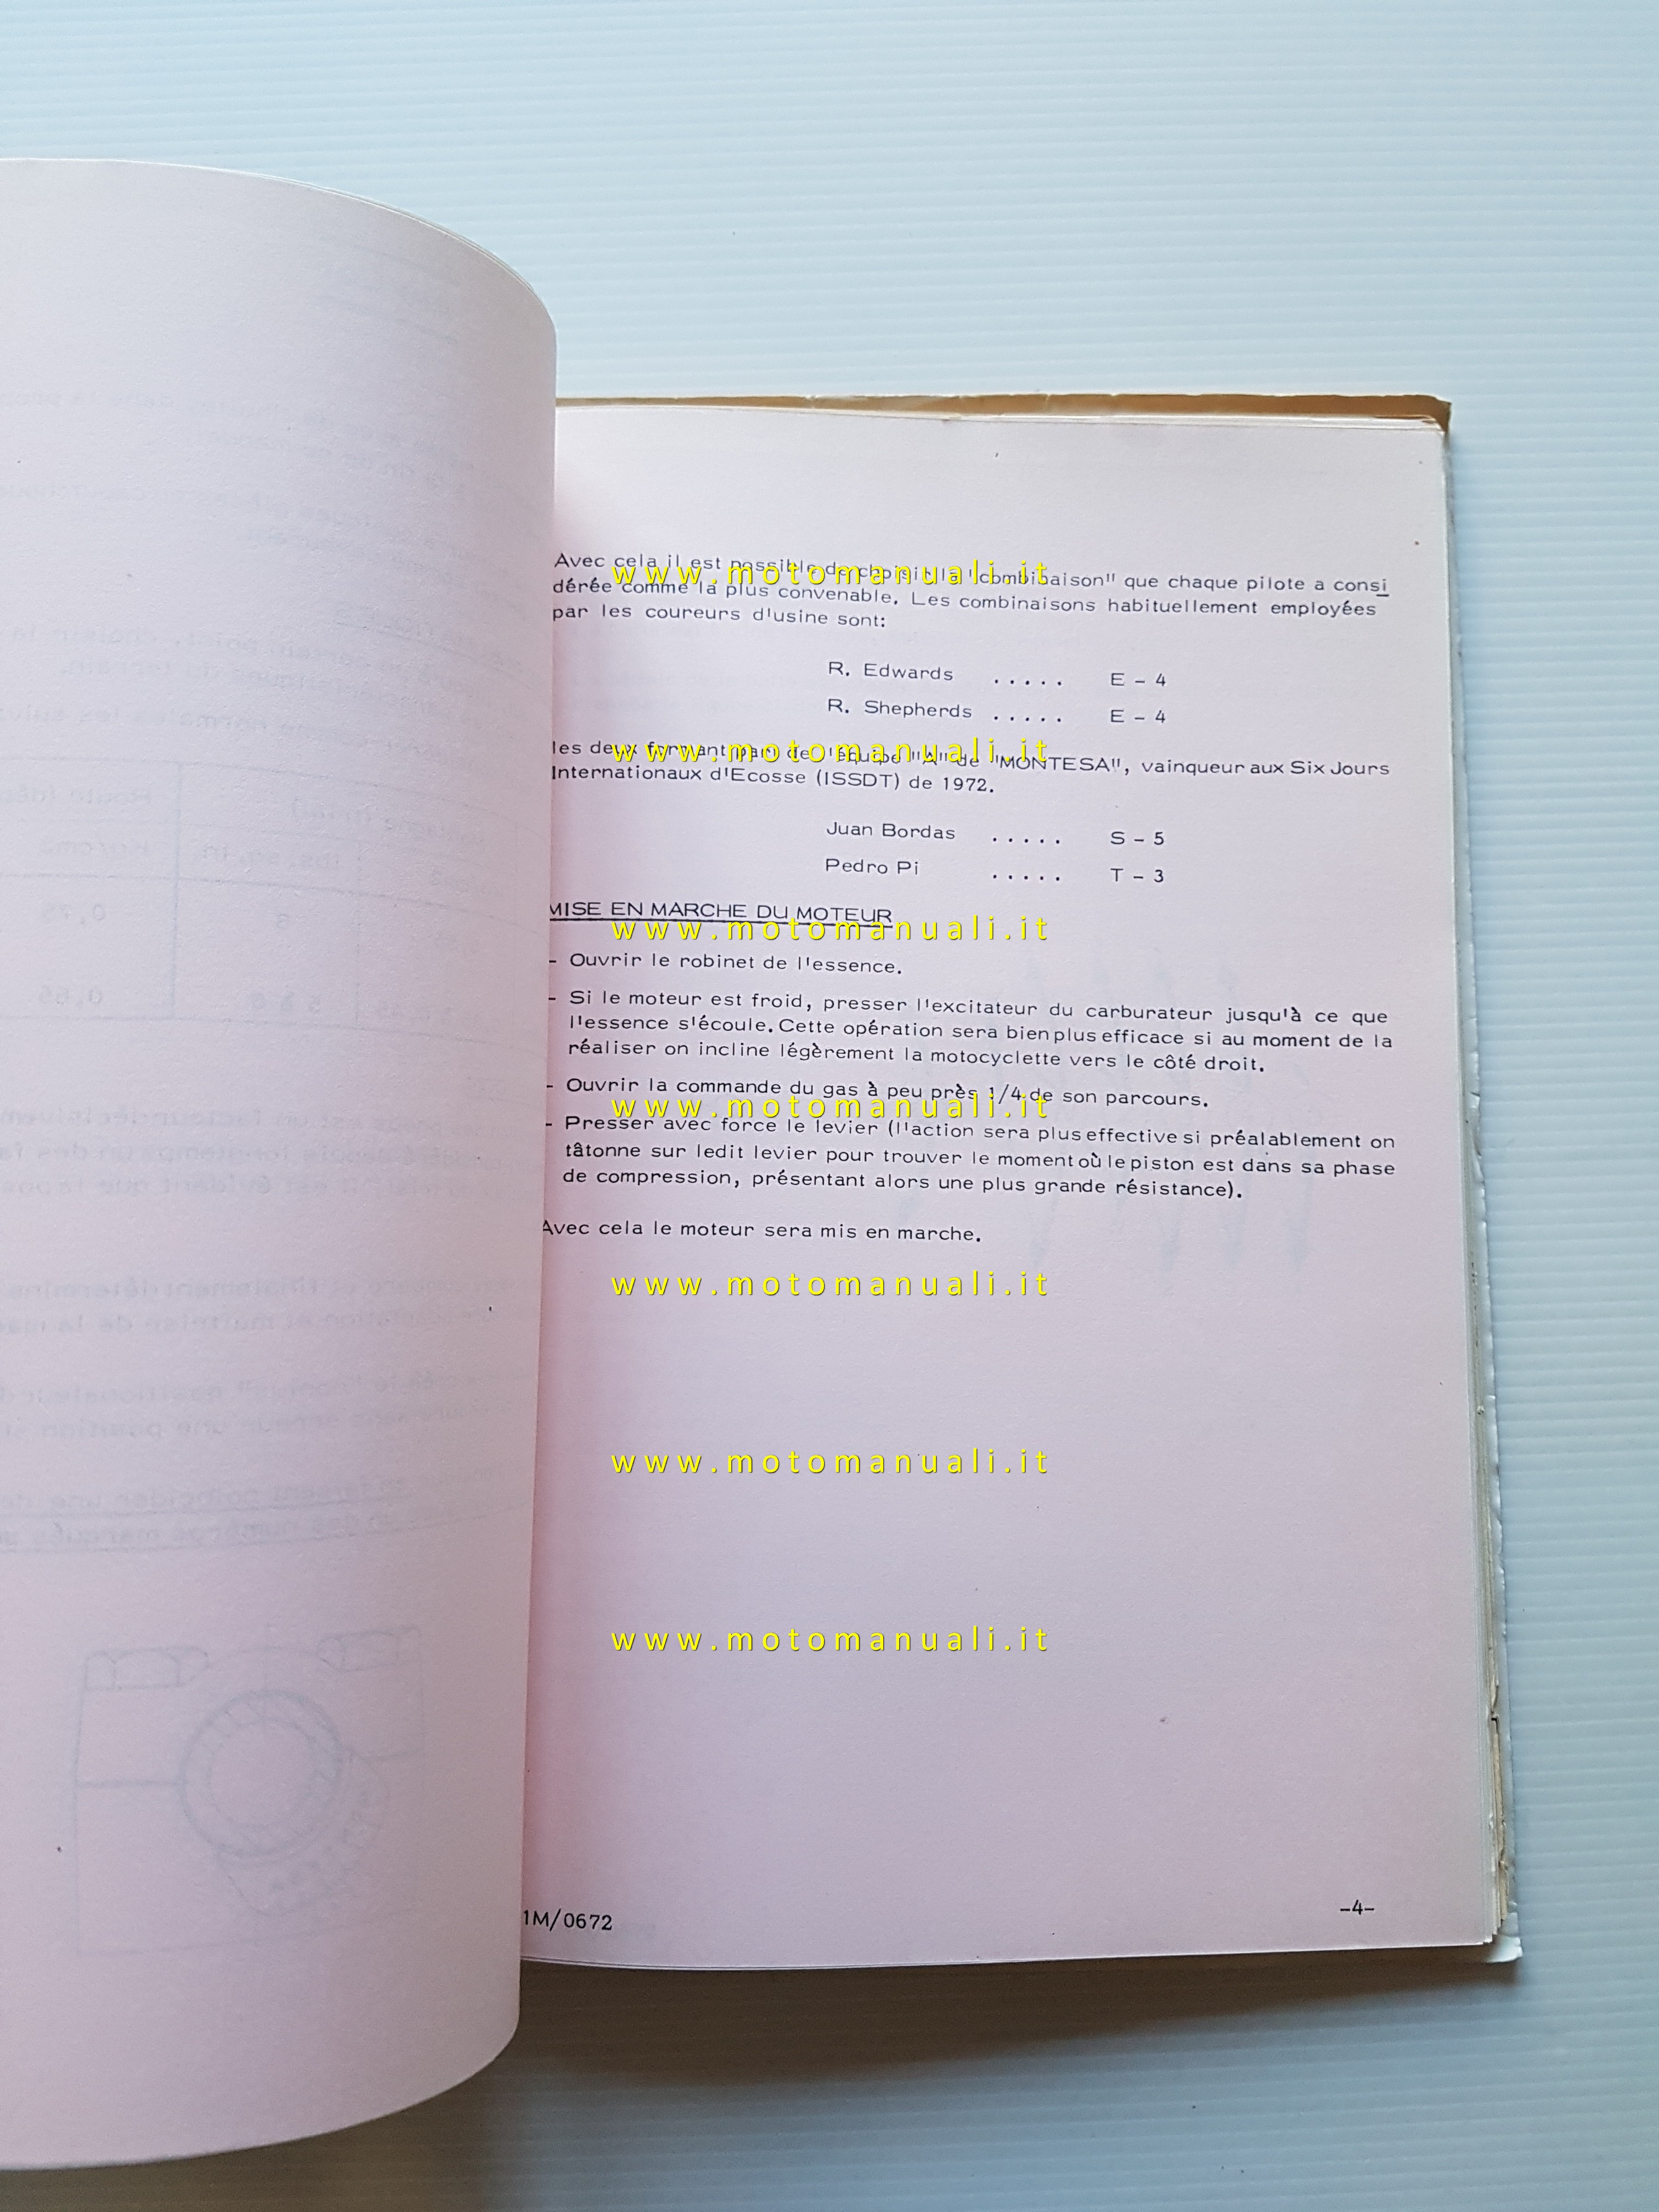 Avec cela il est possible de choisir la "combinaison" que chaque pilote a consi
dérée comme la plus convenable. Les combinaisons habituellement employées
par les coureurs d'usine sont:
R. Edwards ..... E - 4
R. Shepherds ..... E - 4
les deux formant part de l'équipe "A" de "MONTESA", vainqueur aux Six Jours
Internationaux d'Ecosse (ISSDT) de 1972.
Juan Bordas ..... S - 5
Pedro Pi ..... T - 3
MISE EN MARCHE DU MOTEUR
- Ouvrir le robinet de l'essence.
- Si le moteur est froid, presser l'excitateur du carburateur jusqu'à ce que
l'essence s'écoule. Cette opération sera bien plus efficace si au moment de la
réaliser on incline légèrement la motocyclette vers le côté droit.
- Ouvrir la commande du gas à peu près 1/4 de son parcours.
- Presser avec force le levier (l'action sera plus effective si préalablement on
tâtonne sur ledit levier pour trouver le moment où le piston est dans sa phase
de compression, présentant alors une plus grande résistance).
Avec cela le moteur sera mis en marche.
1M/0672
-4-
www.motomanuali.it
www.motomanuali.it
www.motomanuali.it
www.motomanuali.it
www.motomanuali.it
www.motomanuali.it
www.motomanuali.it